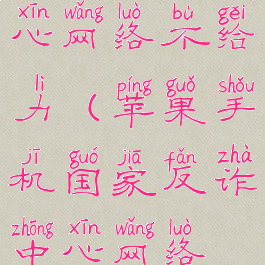 xīn wǎng luò bù gěi
心网络不给
lì píng guǒ shǒu
力（苹果手
jī guó jiā fǎn zhà
机国家反诈
zhōng xīn wǎng luò
中心网络